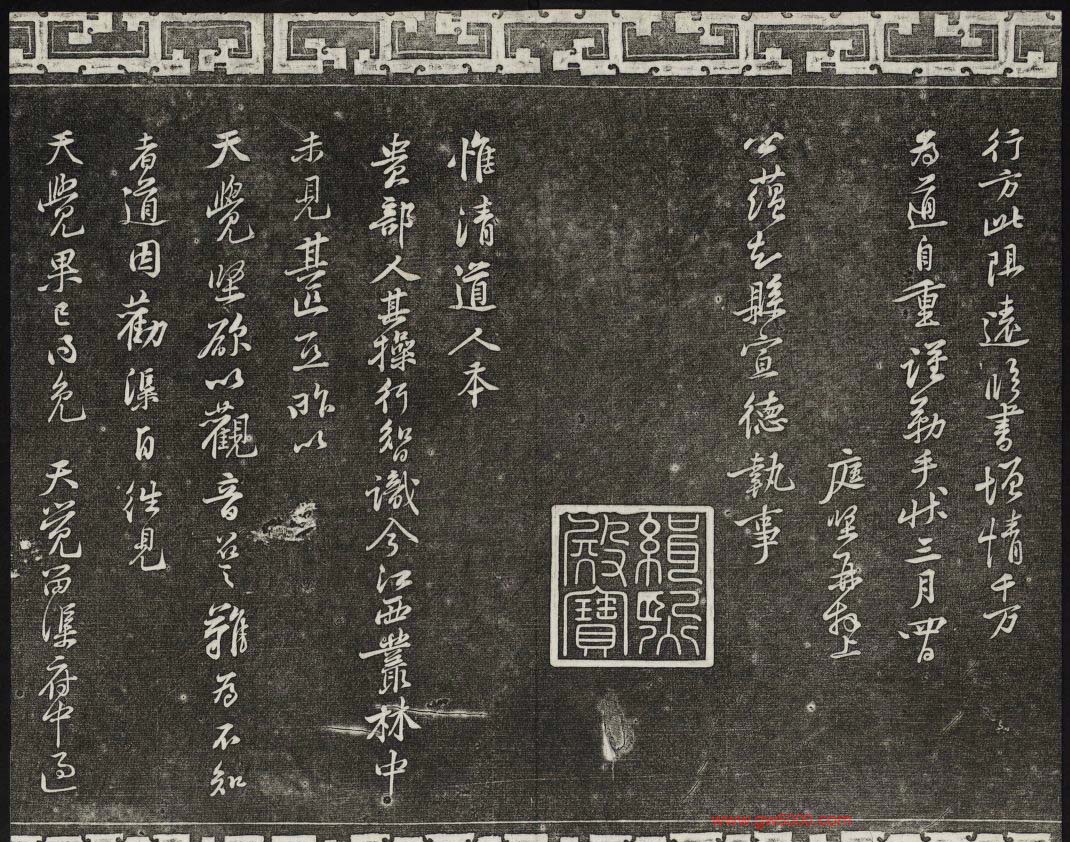 行方此阻遠臨書增情千万
為道自重謹勒手狀三月四日
庭堅再拜上
公蘊知縣宣德執事
緝熙殿寶
惟清道人本
貴部人其操行智識今江西叢林中
未見其匹亞昨以
天覺堅欲以觀音召之難為不知
者道因勸渠自往見
天覺果已得免 天覺留渠府中過